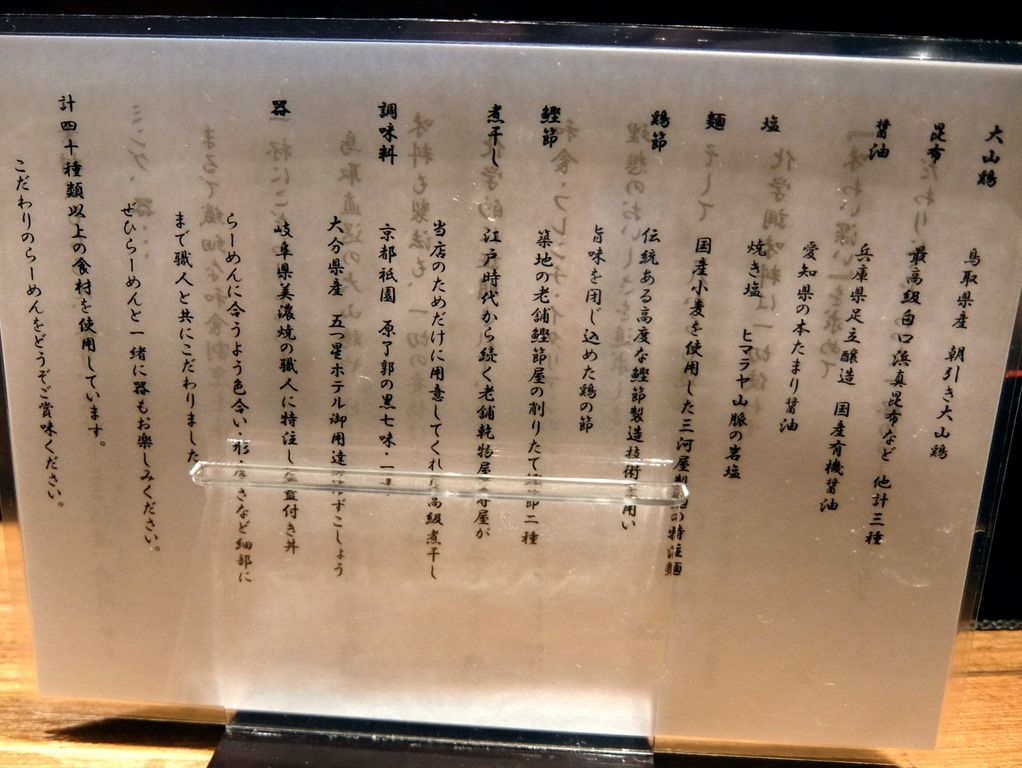 大山鶏
鳥取県産 朝引き大山鶏
昆布
最高級白口浜真昆布など 他計三種
醤油
兵庫県足立醸造 国産有機醤油
愛知県の本たまり醤油
塩
焼き塩 ヒマラヤ山脈の岩塩
麺
国産小麦を使用した三河屋製麺の特注麺
鶏節
伝統ある高度な鰹節製造技術を用い
旨味を閉じ込めた鶏の節
鰹節
築地の老舗鰹節屋の削りたて 節二種
煮干し
江戸時代から続く老舗乾物屋 屋が
当店のためだけに用意してくれた高級煮干し
調味料
京都祇園 原了郭の黒七味・一
大分県産 五つ星ホテル御用達 ゆずこしょう
器
岐阜県美濃焼の職人に特注した蓋付き丼
らーめんに合うよう色合い・形・厚さなど細部に
まで職人と共にこだわりました
ぜひらーめんと一緒に器もお楽しみください。
計四十種類以上の食材を使用しています。
こだわりのらーめんをどうぞご賞味ください。